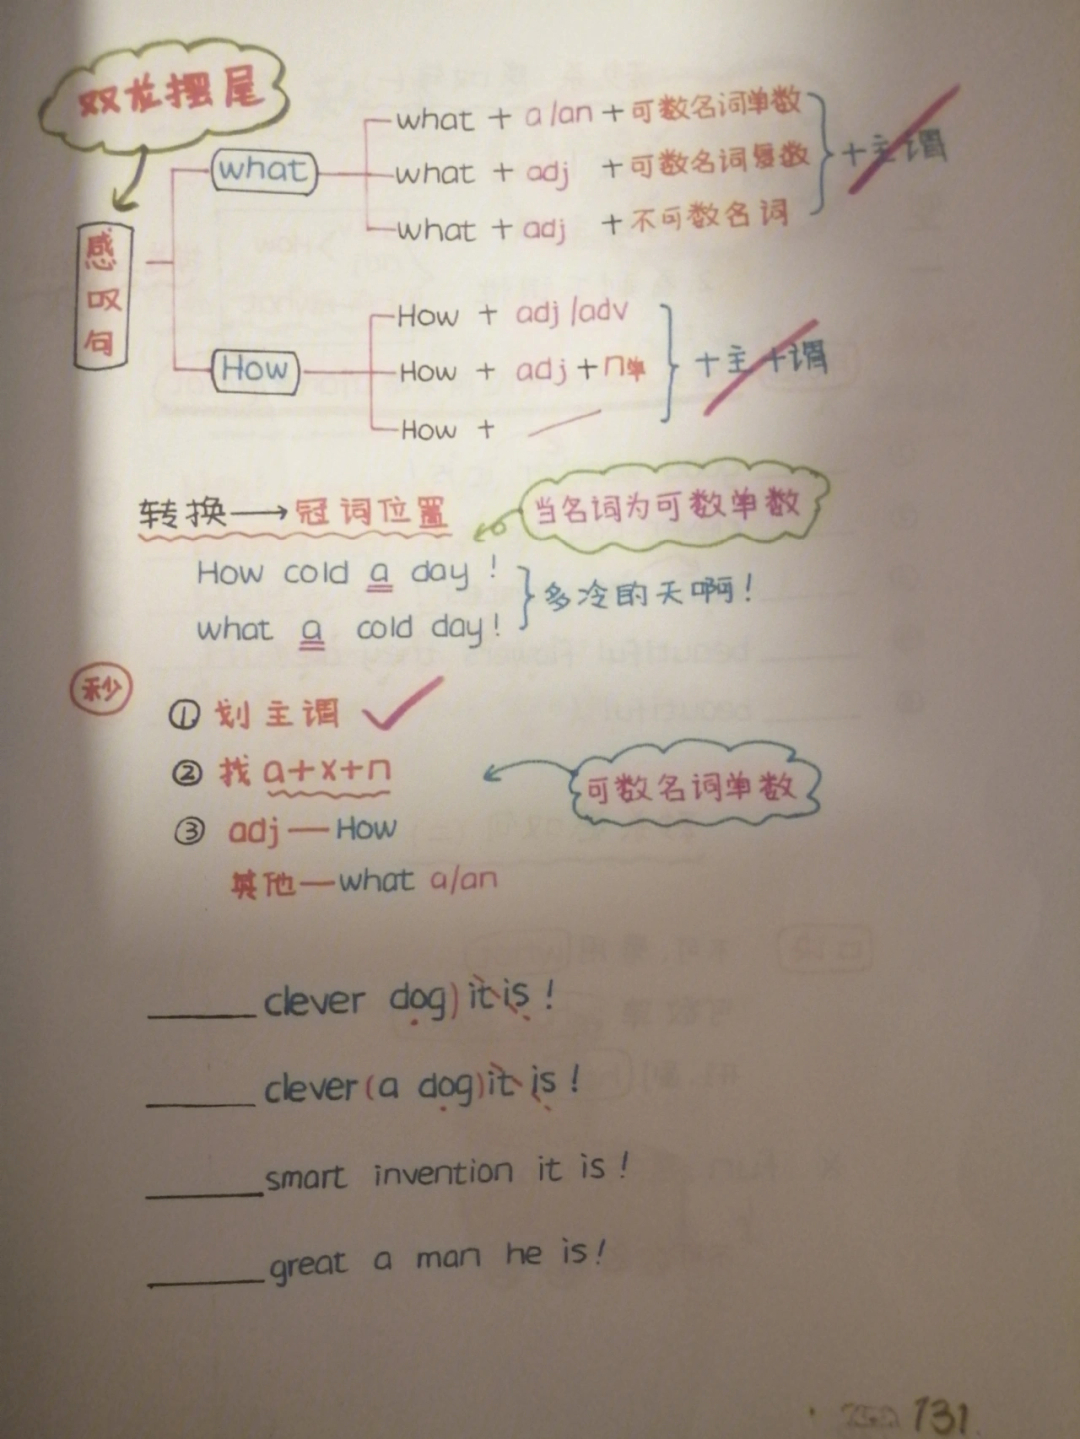 双龙摆尾
感叹句
what
what + a/an + 可数名词单数
what + adj + 可数名词复数
what + adj + 不可数名词
+主谓
How
How + adj/adv
How + adj + n单
How +
+主+谓
转换→冠词位置
当名词为可数单数
How cold a day !
what a cold day!
多冷的天啊!
秒
① 划主谓
② 找 a+x+n
可数名词单数
③ adj—How
其他—what a/an
______clever dog) it is !
______clever (a dog) it is !
______smart invention it is !
______great a man he is!
131